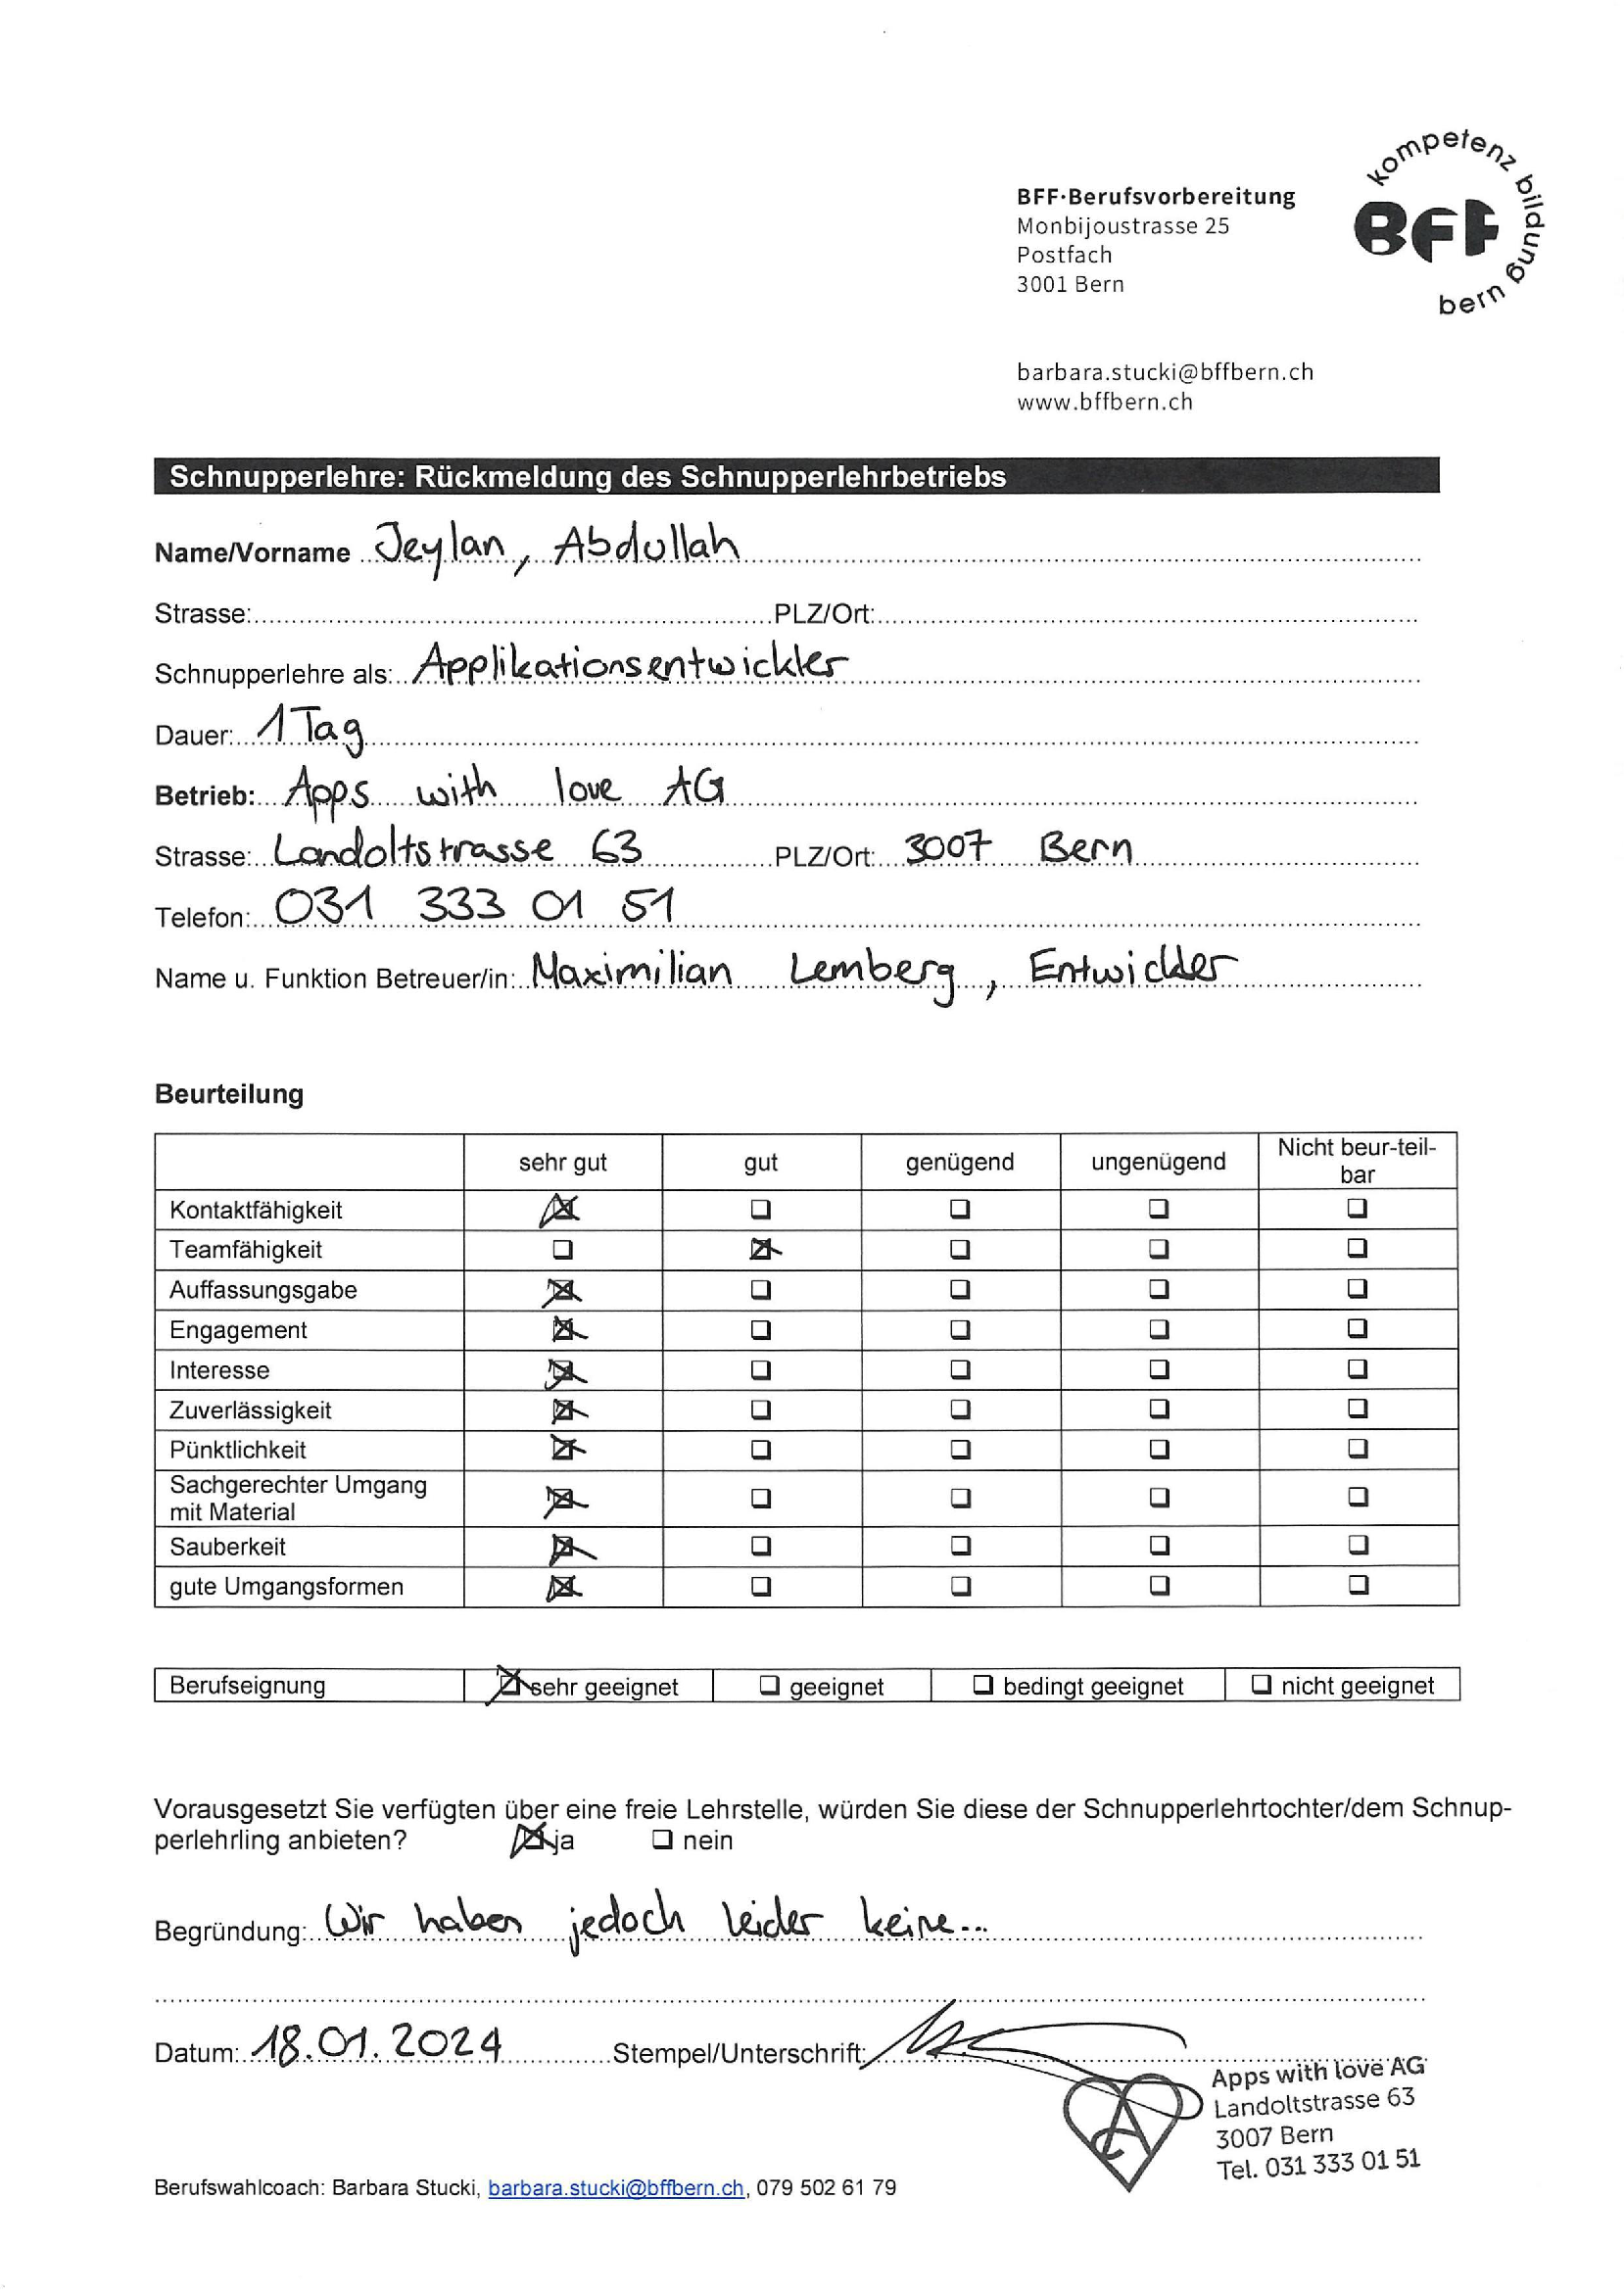 kompetenz bildung bern
BFF
BFF·Berufsvorbereitung
Monbijoustrasse 25
Postfach
3001 Bern
barbara.stucki@bffbern.ch
www.bffbern.ch
Schnupperlehre: Rückmeldung des Schnupperlehrbetriebs
Name/Vorname Jeylan, Abdullah
Strasse: PLZ/Ort:
Schnupperlehre als: Applikationsentwickler
Dauer: 1 Tag
Betrieb: Apps with love AG
Strasse: Landoltstrasse 63 PLZ/Ort: 3007 Bern
Telefon: 031 333 01 51
Name u. Funktion Betreuer/in: Maximilian Lemberg, Entwickler
Beurteilung
sehr gut gut genügend ungenügend Nicht beur-teil-
bar
Kontaktfähigkeit
Teamfähigkeit
Auffassungsgabe
Engagement
Interesse
Zuverlässigkeit
Pünktlichkeit
Sachgerechter Umgang
mit Material
Sauberkeit
gute Umgangsformen
Berufseignung sehr geeignet geeignet bedingt geeignet nicht geeignet
Vorausgesetzt Sie verfügten über eine freie Lehrstelle, würden Sie diese der Schnupperlehrtochter/dem Schnup-
perlehrling anbieten? ja nein
Begründung: Wir haben jedoch leider keine...
Datum: 18.01.2024 Stempel/Unterschrift:
Apps with love AG
Landoltstrasse 63
3007 Bern
Tel. 031 333 01 51
Berufswahlcoach: Barbara Stucki, barbara.stucki@bffbern.ch, 079 502 61 79